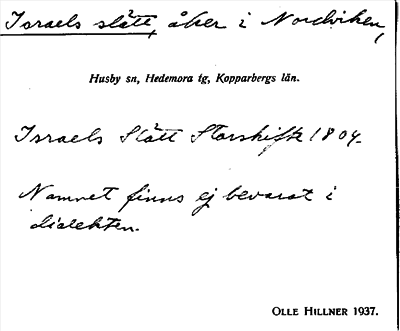 Israels slått, åker i Nordviken,
Husby sn, Hedemora tg, Kopparbergs län.
Israels Slått Storskifte 1804.
Namnet finns ej bevarat i
dialekten.
OLLE HILLNER 1937.